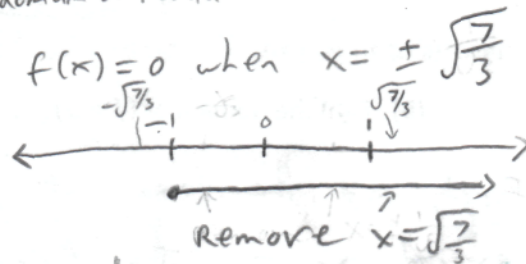 f(x) = 0 when x = ± √(7/3)
-√7/3 √7/3
-1 0 1
Remove x = √(7/3)